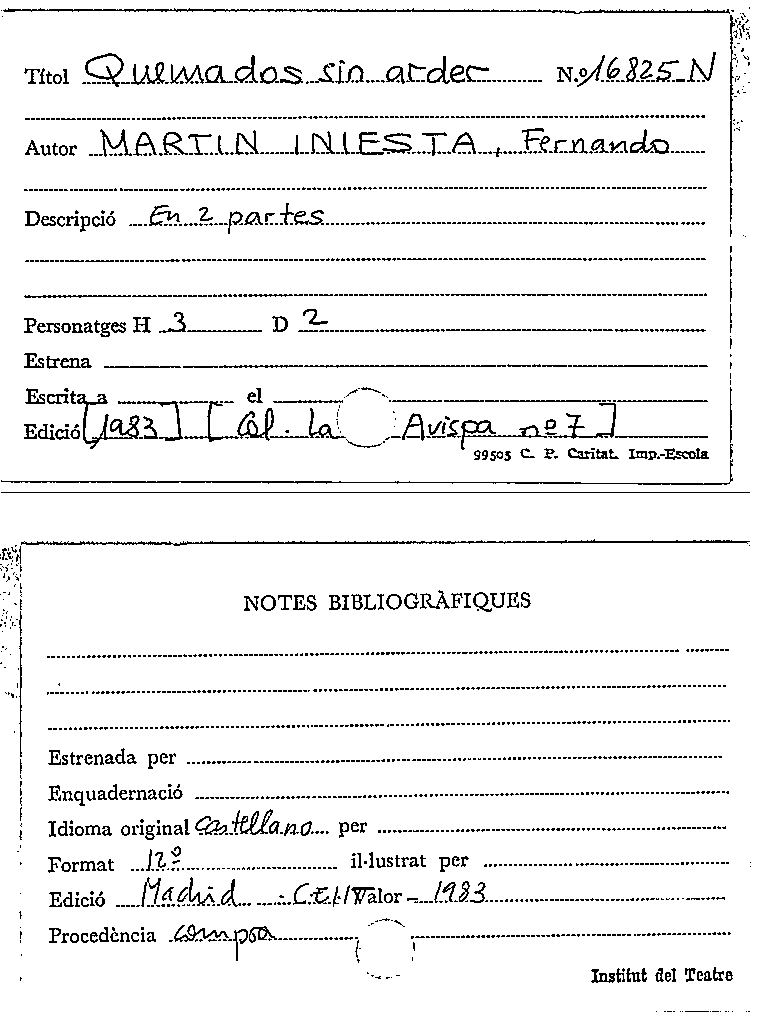 Títol Quemados sin arder N.º 16825-N
Autor MARTIN INIESTA, Fernando
Descripció En 2 partes
Personatges H 3 D 2
Estrena
Escrita a el
Edició [1983] [Col. la Avispa nº 7]
99505 C. P. Caritat. Imp.-Escola
NOTES BIBLIOGRÀFIQUES
Estrenada per
Enquadernació
Idioma original Castellano per
Format 12º il·lustrat per
Edició Madrid Valor - 1983
Procedència compra
Institut del Teatre